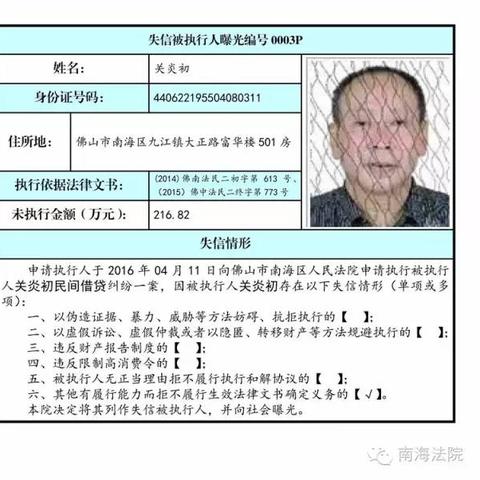 失信被执行人曝光编号 0003P
姓名： 关炎初
身份证号码： 440622195504080311
住所地： 佛山市南海区九江镇大正路富华楼 501 房
执行依据法律文书： (2014)佛南法民二初字第 613 号、
(2015) 佛中法民二终字第 773 号
未执行金额（万元）： 216.82
失信情形
申请执行人于 2016 年 04 月 11 日向佛山市南海区人民法院申请执行被执行
人关炎初民间借贷纠纷一案，因被执行人关炎初存在以下失信情形（单项或多
项）：
一、以伪造证据、暴力、威胁等方法妨碍、抗拒执行的【 】；
二、以虚假诉讼、虚假仲裁或者以隐匿、转移财产等方法规避执行的【 】；
三、违反财产报告制度的【 】；
四、违反限制高消费令的【 】；
五、被执行人无正当理由拒不履行执行和解协议的【 】；
六、其他有履行能力而拒不履行生效法律文书确定义务的【√】。
本院决定将其列作失信被执行人，并向社会曝光。
南海法院